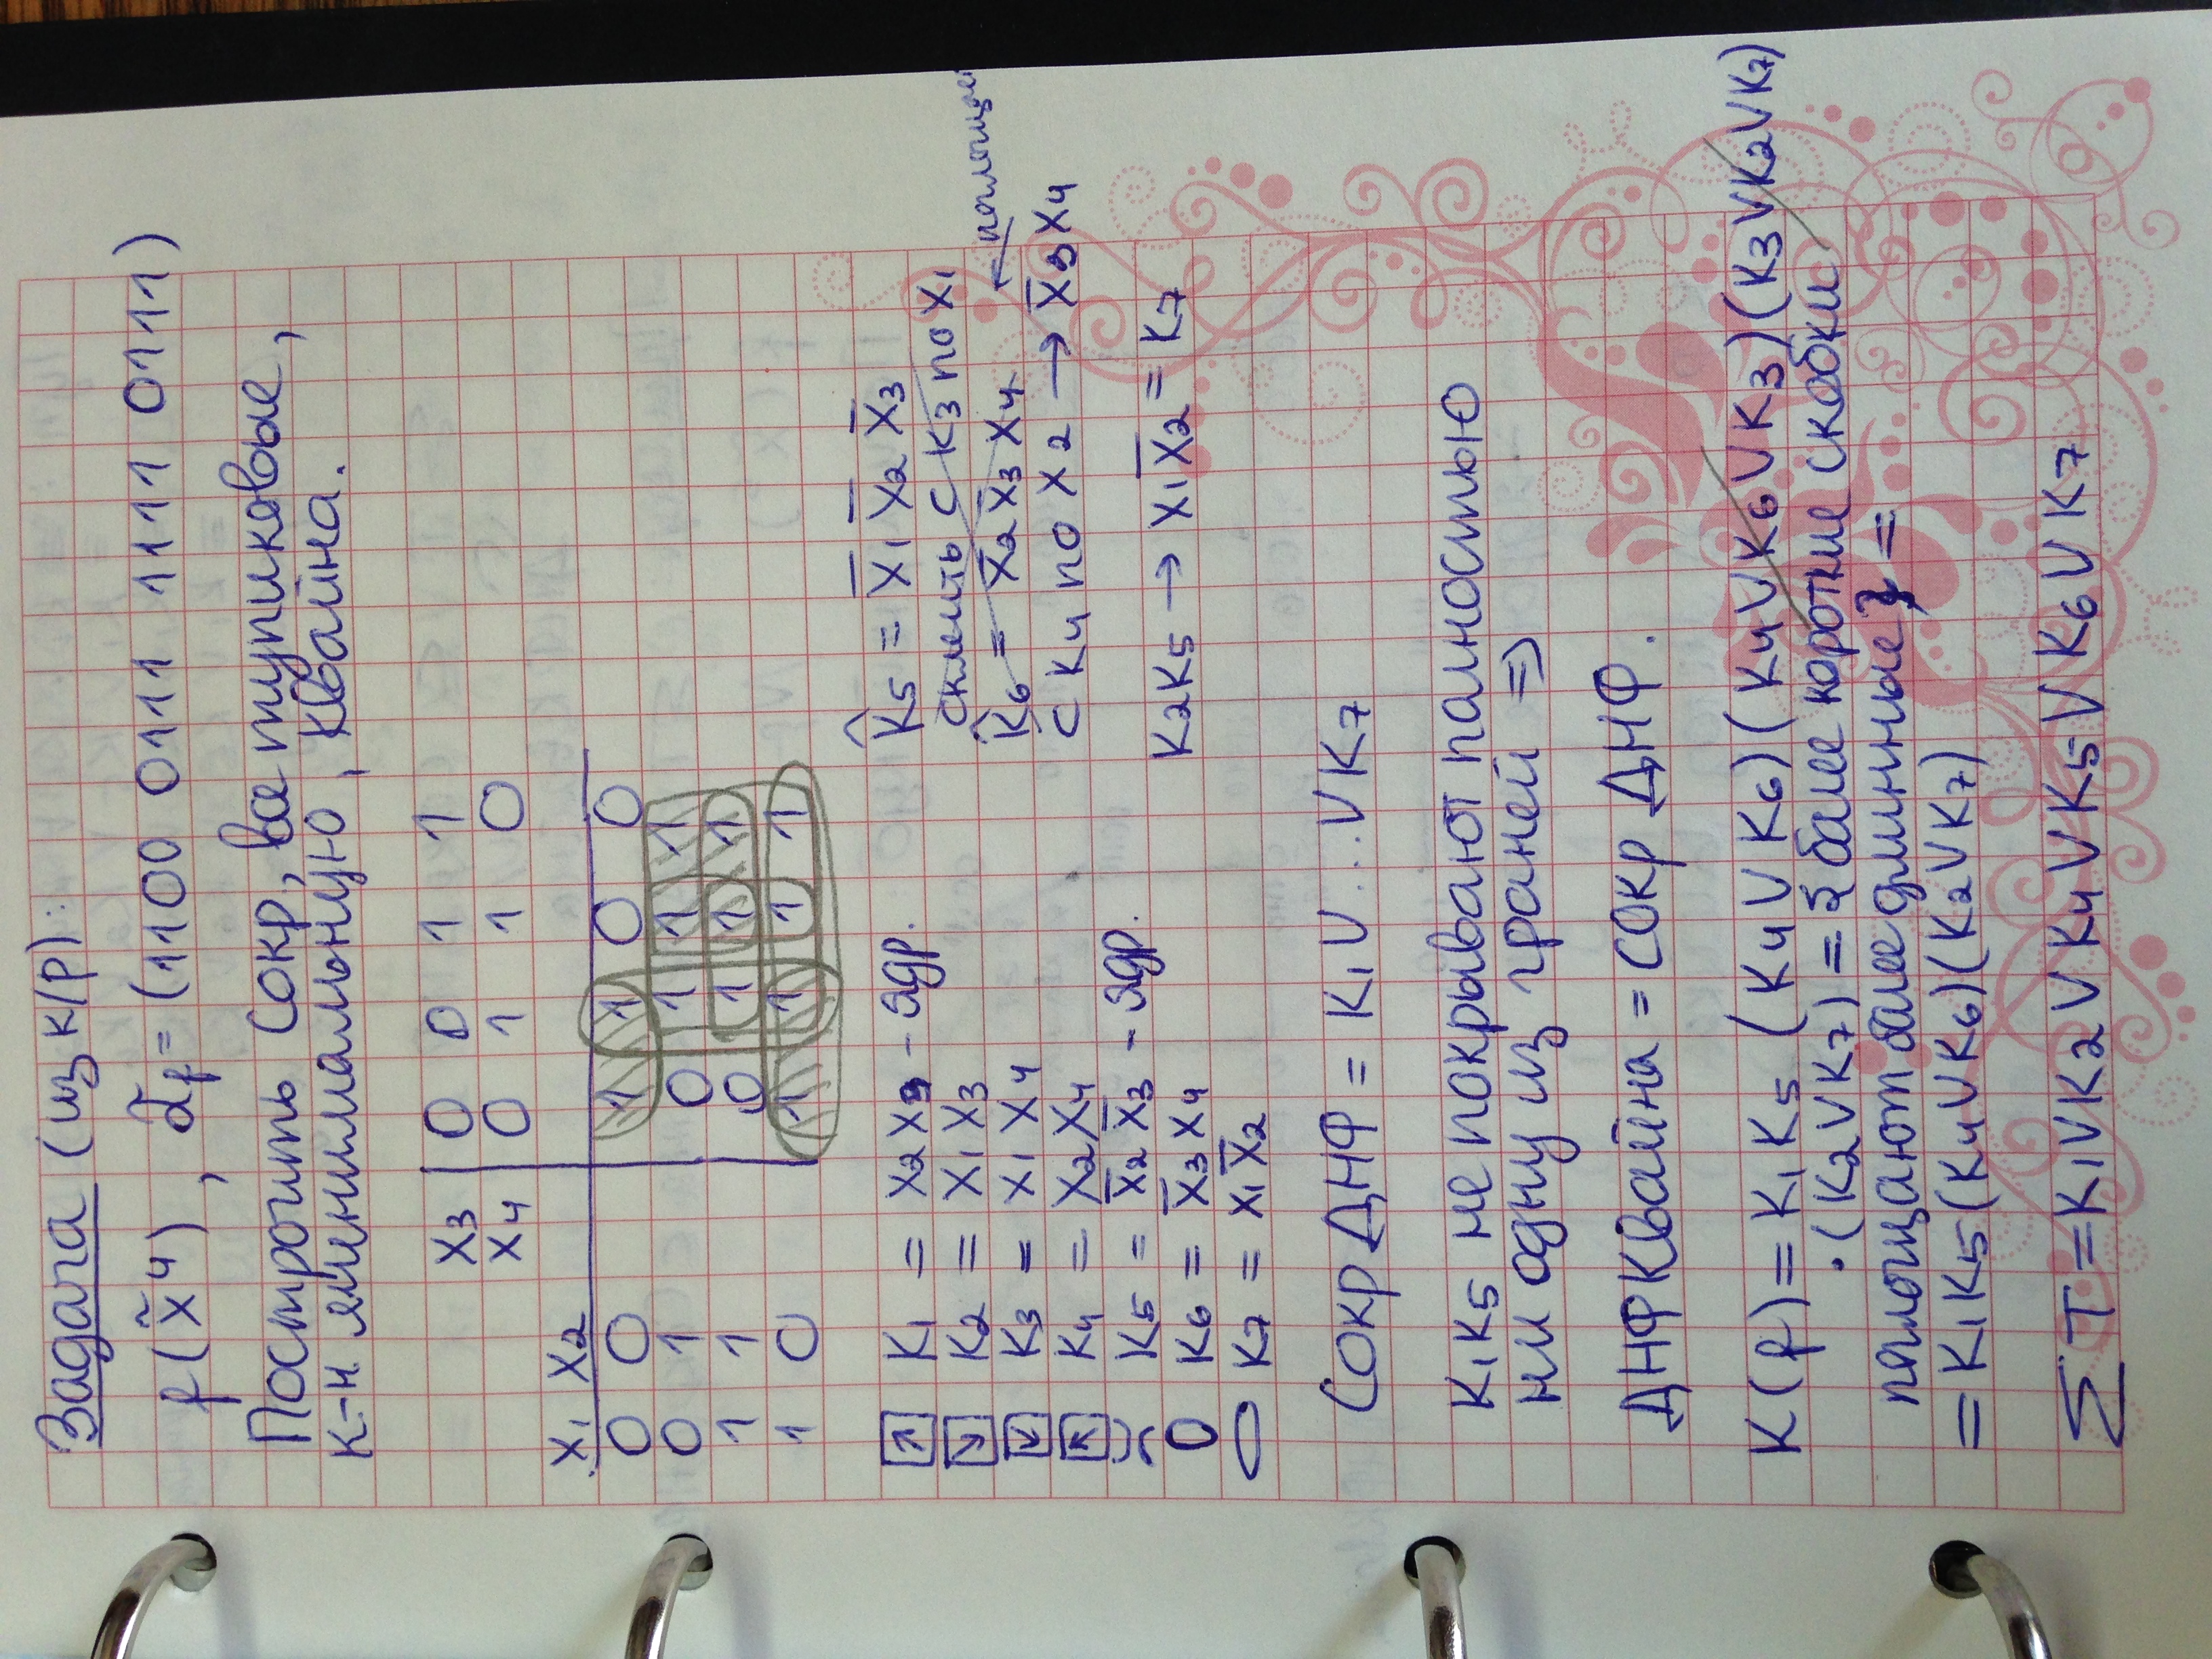 Задача (из к/р):
f(x̃⁴), α̃f = (1100 0111 1111 0111)
Построить сокр, все тупиковые,
к-н минимальную, Квайна.
x3 0 0 1 1
x4 0 1 1 0
x1 x2
0 0 1 1 0 0
0 1 0 1 1 1
1 1 0 1 1 1
1 0 1 1 1 1
K1 = x2 x3 - ядр.
K2 = x1 x3
K3 = x1 x4
K4 = x2 x4
K5 = x̅2 x̅3 - ядр.
K6 = x̅3 x4
K7 = x1 x̅2
K̂5 = x̅1 x̅2 x̅3
склеить с K3 по x1
K̂6 = x̅2 x̅3 x4 ← поглощае
с K4 по x2 → x̅3 x4
K2K5 → x1 x̅2 = K7
Сокр ДНФ = K1 V ... V K7
K1K5 не покрывают полностью
ни одну из граней ⇒
ДНФ Квайна = сокр ДНФ.
K(f) = K1K5 (K4VK6)(K4VK6VK3)(K3VK2VK7)
·(K2VK7) = { более короткие скобки
поглощают более длинные } =
= K1K5(K4VK6)(K2VK7)
ΣT = K1VK2VK4VK5VK6VK7